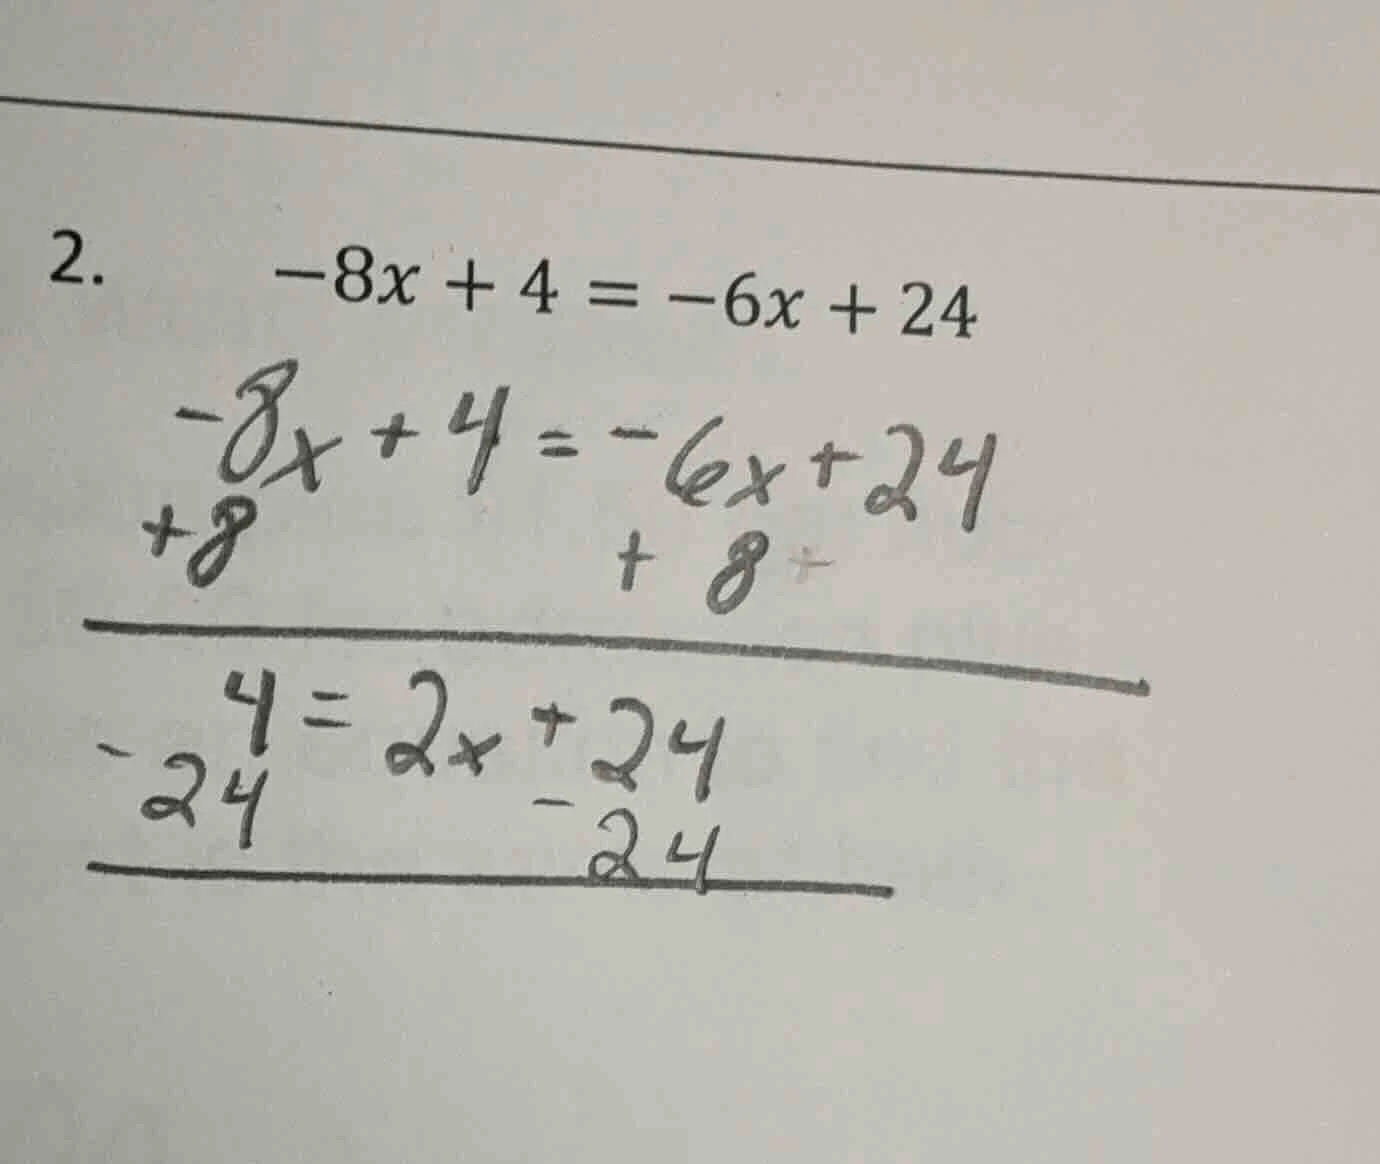 2. −8x + 4 = −6x + 24
-8x + 4 = -6x + 24
+8 + 8 +
4 = 2x + 24
-24 -24